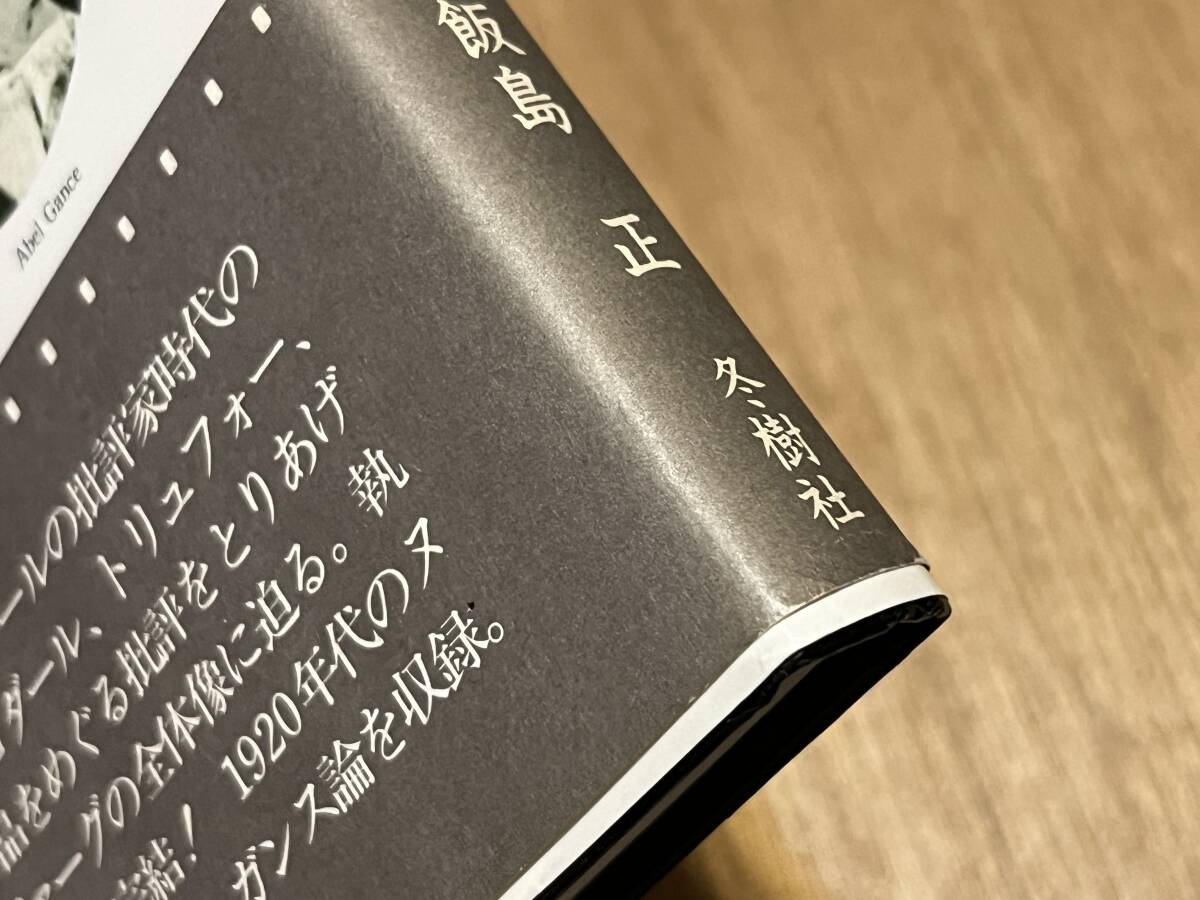 飯島 正
冬樹社
Abel Gance
ールの批評家時代の
ダール、トリュフォー、
品をめぐる批評をとりあげ
ァーグの全体像に迫る。執
結! 1920年代のヌ
ガンス論を収録。